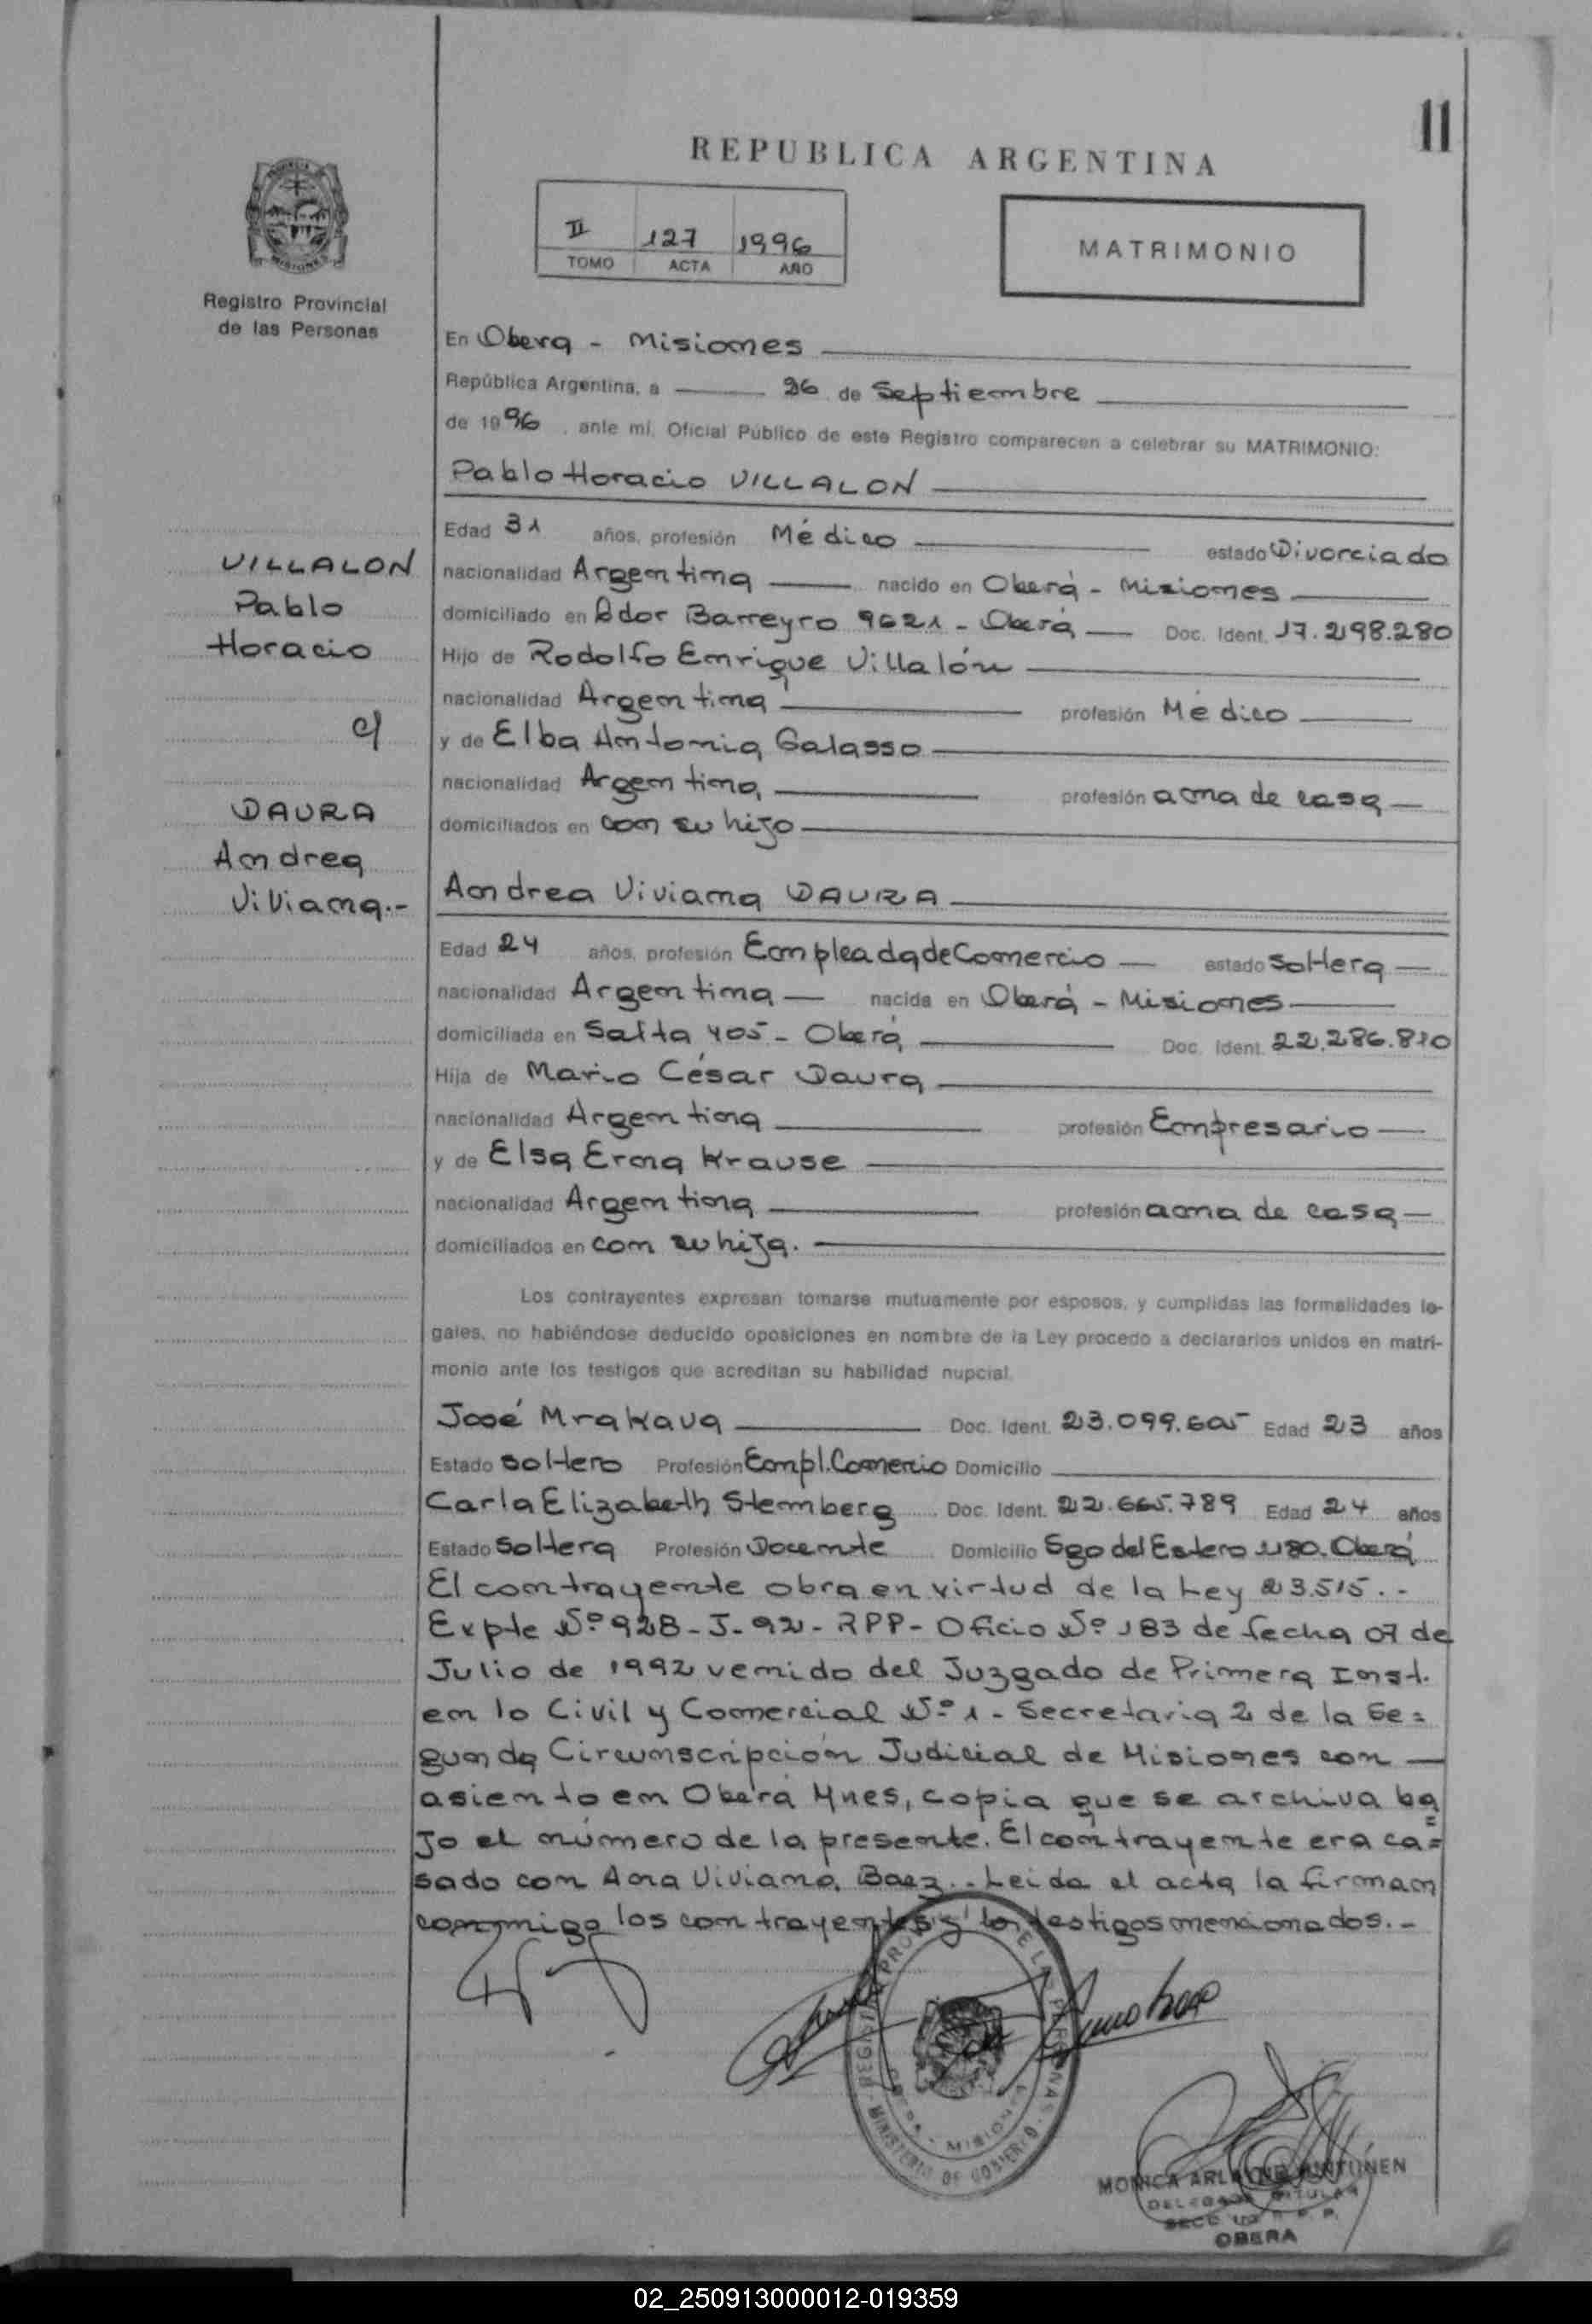 11
REPUBLICA ARGENTINA
II 127 1996
TOMO ACTA AÑO
MATRIMONIO
MISIONES
Registro Provincial
de las Personas
En Oberá - Misiones
República Argentina, a 26 de Septiembre
de 1996, ante mí, Oficial Público de este Registro comparecen a celebrar su MATRIMONIO:
Pablo Horacio VILLALON
Edad 31 años, profesión Médico estado Divorciado
nacionalidad Argentina nacido en Oberá - Misiones
domiciliado en Ador Barreyro 9621 - Oberá Doc. Ident. 17.298.280
Hijo de Rodolfo Enrique Villalón
nacionalidad Argentina profesión Médico
y de Elba Antonia Galasso
nacionalidad Argentina profesión ama de casa
domiciliados en con su hijo
VILLALON
Pablo
Horacio
c/
DAURA
Andrea
Viviana.-
Andrea Viviana DAURA
Edad 24 años, profesión Empleada de Comercio estado Soltera
nacionalidad Argentina nacida en Oberá - Misiones
domiciliada en Salta 405 - Oberá Doc. Ident. 22.286.810
Hija de Mario César Daura
nacionalidad Argentina profesión Empresario
y de Elsa Erna Krause
nacionalidad Argentina profesión ama de casa
domiciliados en con su hija.
Los contrayentes expresan tomarse mutuamente por esposos, y cumplidas las formalidades le-
gales, no habiéndose deducido oposiciones en nombre de la Ley procedo a declararlos unidos en matri-
monio ante los testigos que acreditan su habilidad nupcial.
José Mrakava Doc. Ident. 23.099.605 Edad 23 años
Estado soltero Profesión Empl. Comercio Domicilio
Carla Elizabeth Stemberg Doc. Ident. 22.665.789 Edad 24 años
Estado Soltera Profesión Docente Domicilio Sgo del Estero 1180. Oberá
El contrayente obra en virtud de la Ley 23.515.-
Expte Nº 928-J-92- RPP- Oficio Nº 183 de fecha 07 de
Julio de 1992 venido del Juzgado de Primera Inst.
en lo Civil y Comercial Nº 1 - Secretaria 2 de la Se=
gunda Circunscripción Judicial de Misiones con
asiento en Oberá Mnes, copia que se archiva ba=
jo el número de la presente. El contrayente era ca=
sado con Ana Viviana Baez.. Leida el acta la firman
conmigo los contrayentes y los testigos mencionados.-
MINISTERIO DE GOBIERNO
MONICA
DELEGADA TITULAR
OBERA
02_250913000012-019359